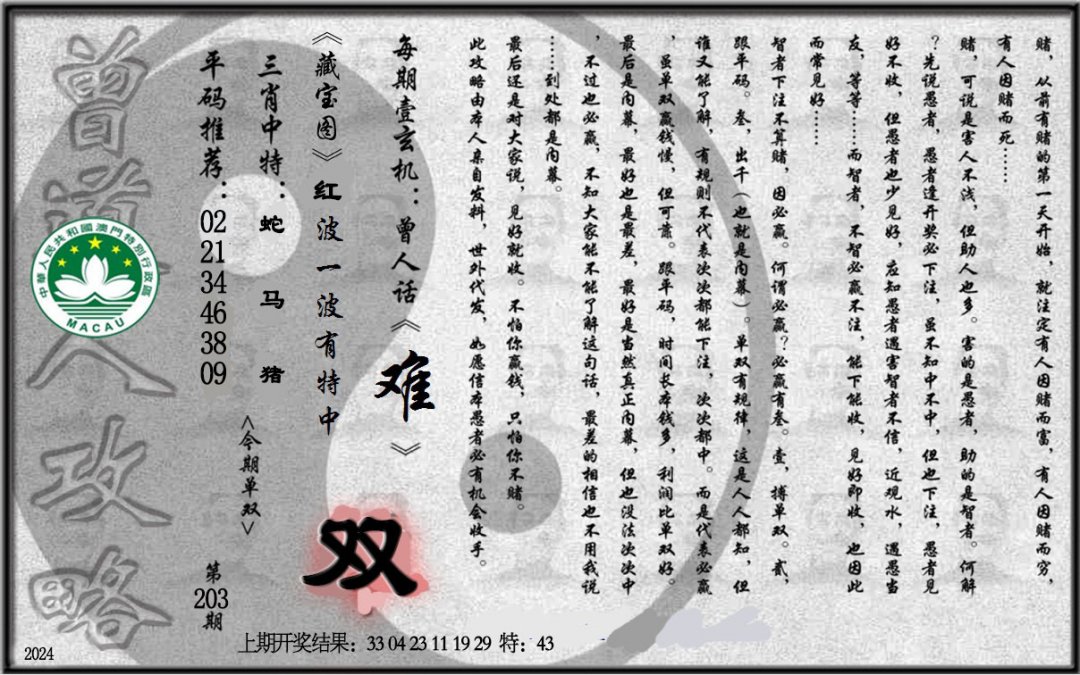 赌，从前有赌的第一天开始，就注定有人因赌而富，有人因赌而穷，
有人因赌而死……
赌，可说是害人不浅，但助人也多。害的是愚者，助的是智者。何解
？先说愚者，愚者逢开奖必下注，虽不知中不中，但也下注，愚者见
好不收，但愚者也少见好，应知愚者遇害智者不信，近观水，遇愚当
友，等等……而智者，不智必赢不注，能下能收，见好即收，也因此
而常见好……
智者下注不算赌，因必赢。何谓必赢？必赢有叁。壹，搏单双。贰，
跟平码。叁，出千（也就是内幕）。单双有规律，这是人人都知，但
谁又能了解，有规则不代表次次都能下注，次次都中。而是代表必赢
，虽单双赢钱慢，但可靠。跟平码，时间长本钱多，利润比单双好。
最后是内幕，最好也是最差，最好是当然真正内幕，但也没法次次中
，不过也必赢，不知大家能不能了解这句话，最差的相信也不用我说
……到处都是内幕。
最后还是对大家说，见好就收。不怕你赢钱，只怕你不赌。
此攻略由本人亲自发料，世外代发，如愿信本愚者必有机会收手。
每期壹玄机：曾人话《难》
《藏宝图》红波一波有特中
双
三肖中特：蛇 马 猪
<今期单双>
平码推荐：02 21 34 46 38 09
第203期
曾道人攻略
中華人民共和國澳門特別行政區
MACAU
上期开奖结果：33 04 23 11 19 29 特：43
2024